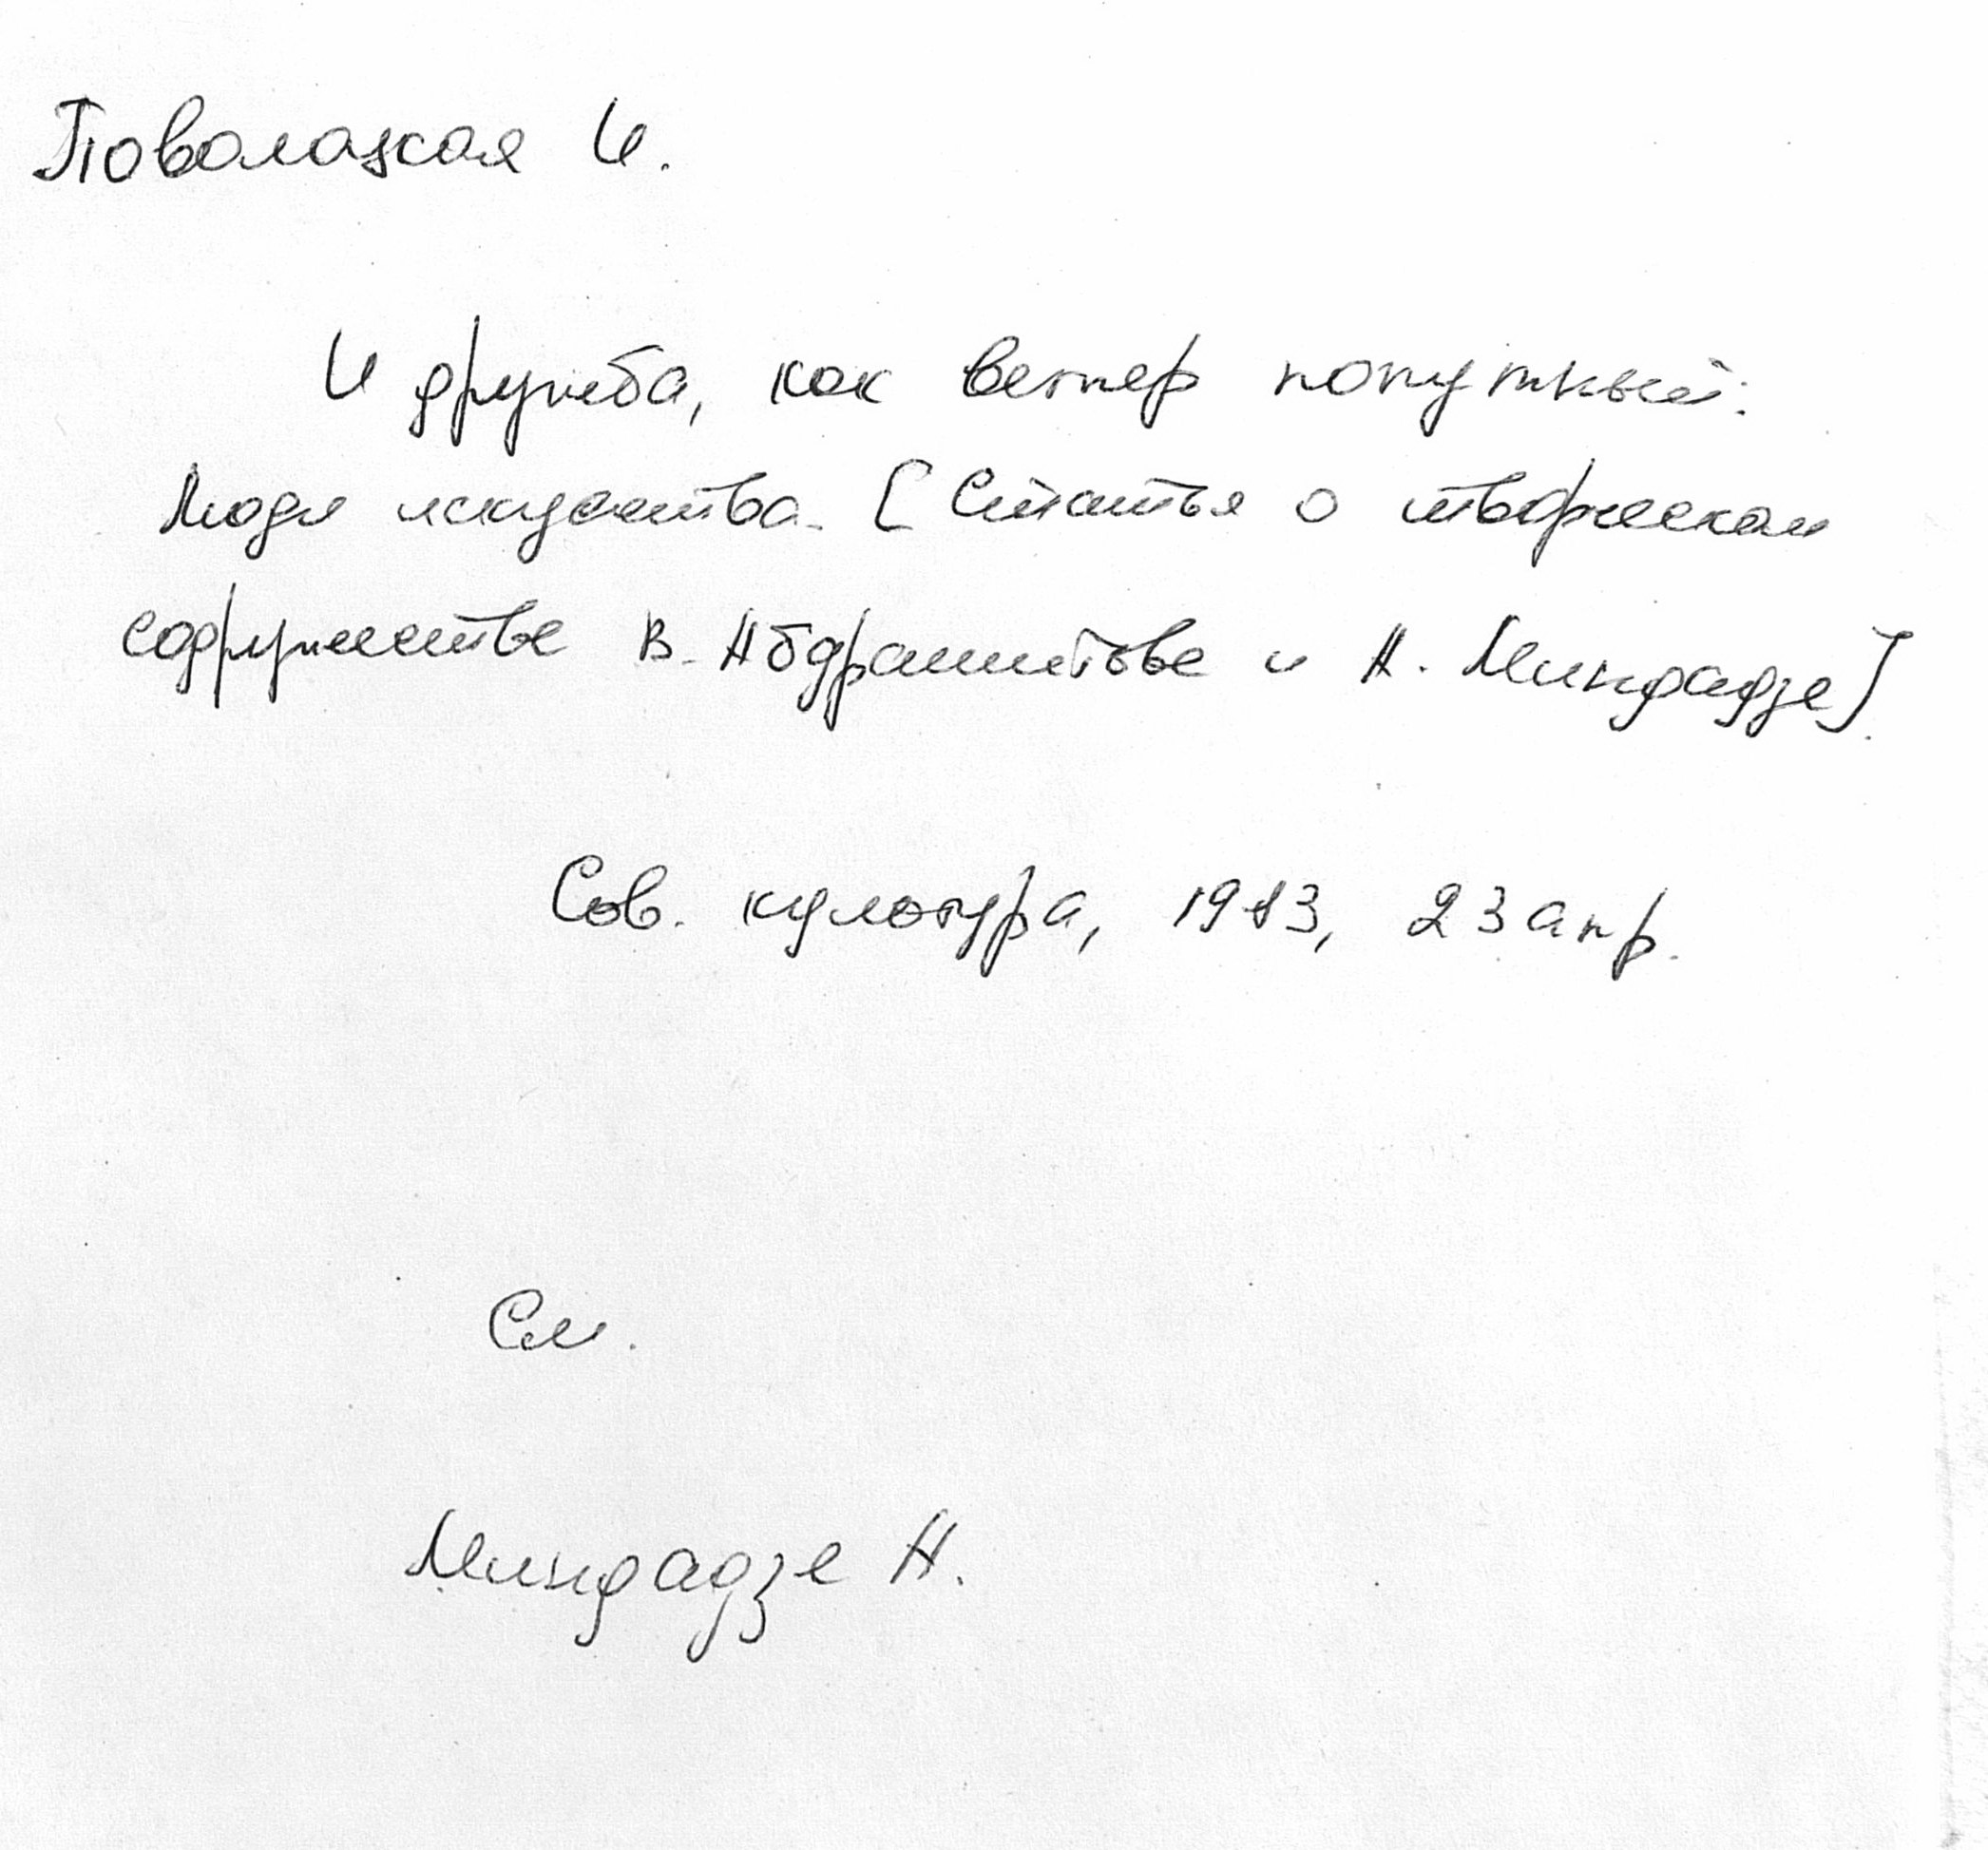 Поволацкая И.
И дружба, как ветер попутный:
Люди искусства. [Статья о творческом
содружестве В. Абдрашитове и А. Миндадзе].
Сов. культура, 1983, 23 апр.
См.
Миндадзе А.